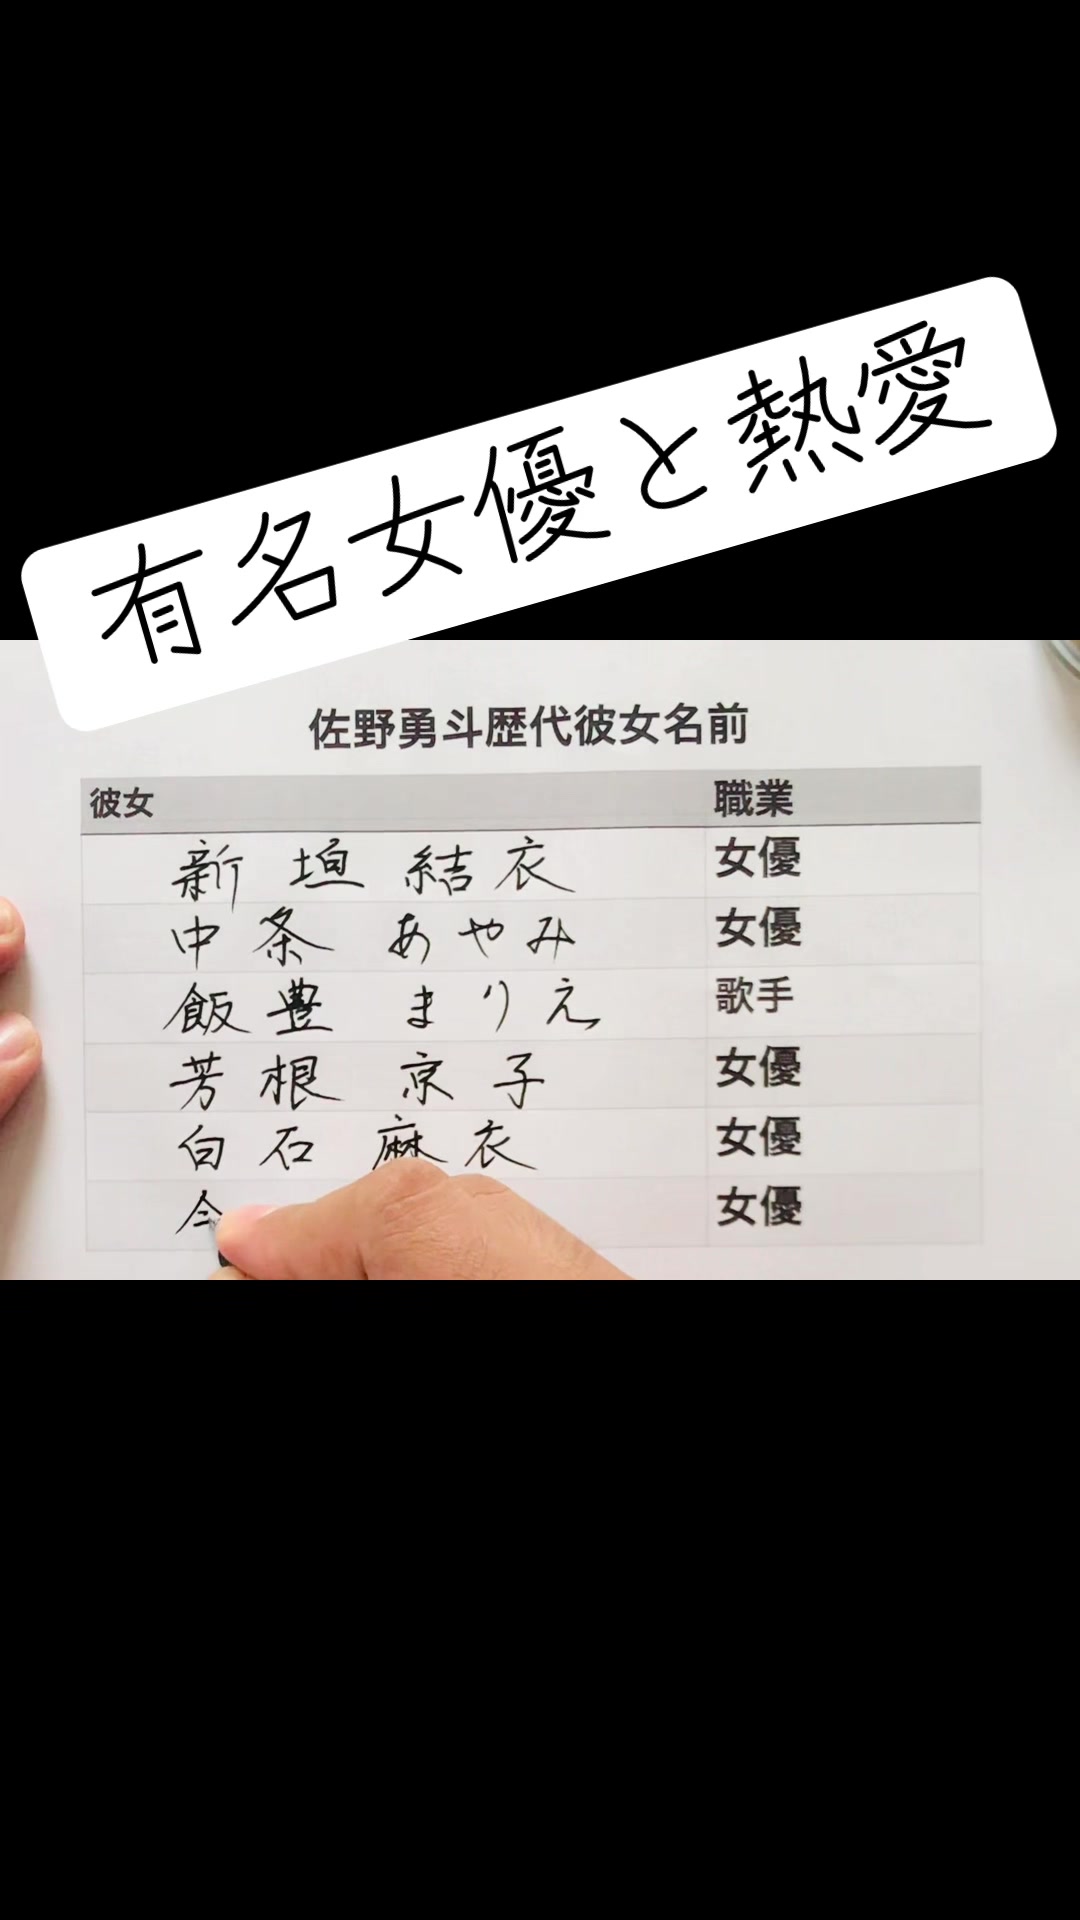 有名女優と熱愛
佐野勇斗歴代彼女名前
彼女 職業
新垣結衣 女優
中条あやみ 女優
飯豊まりえ 歌手
芳根京子 女優
白石麻衣 女優
今 女優